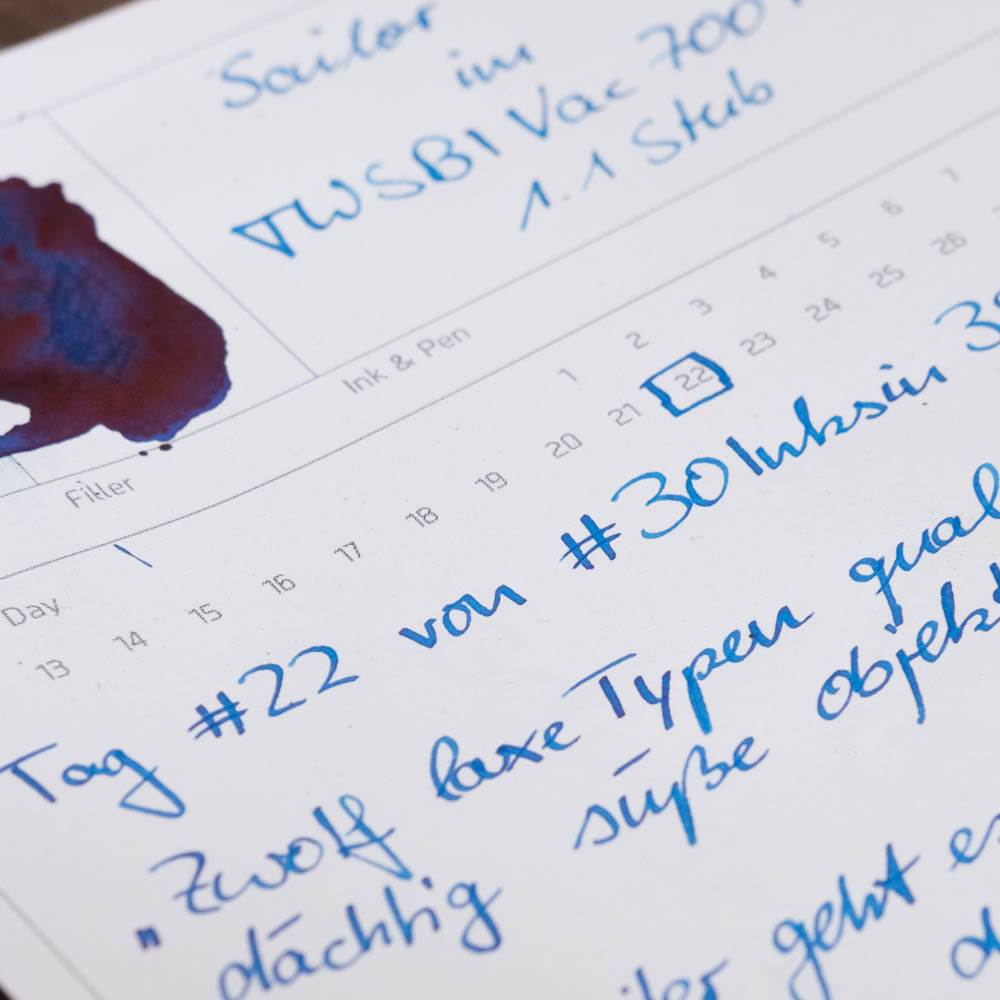 Sailor
im
TWSBI Vac 700
1.1 Stub
Ink & Pen
Fitler
Day
1 2 3 4 5 6 7
13 14 15 16 17 18 19 20 21 22 23 24 25 26
Tag #22 von #30Inksin 3
"Zwölf laxe Typen qual
dächtig süße objekt
geht es